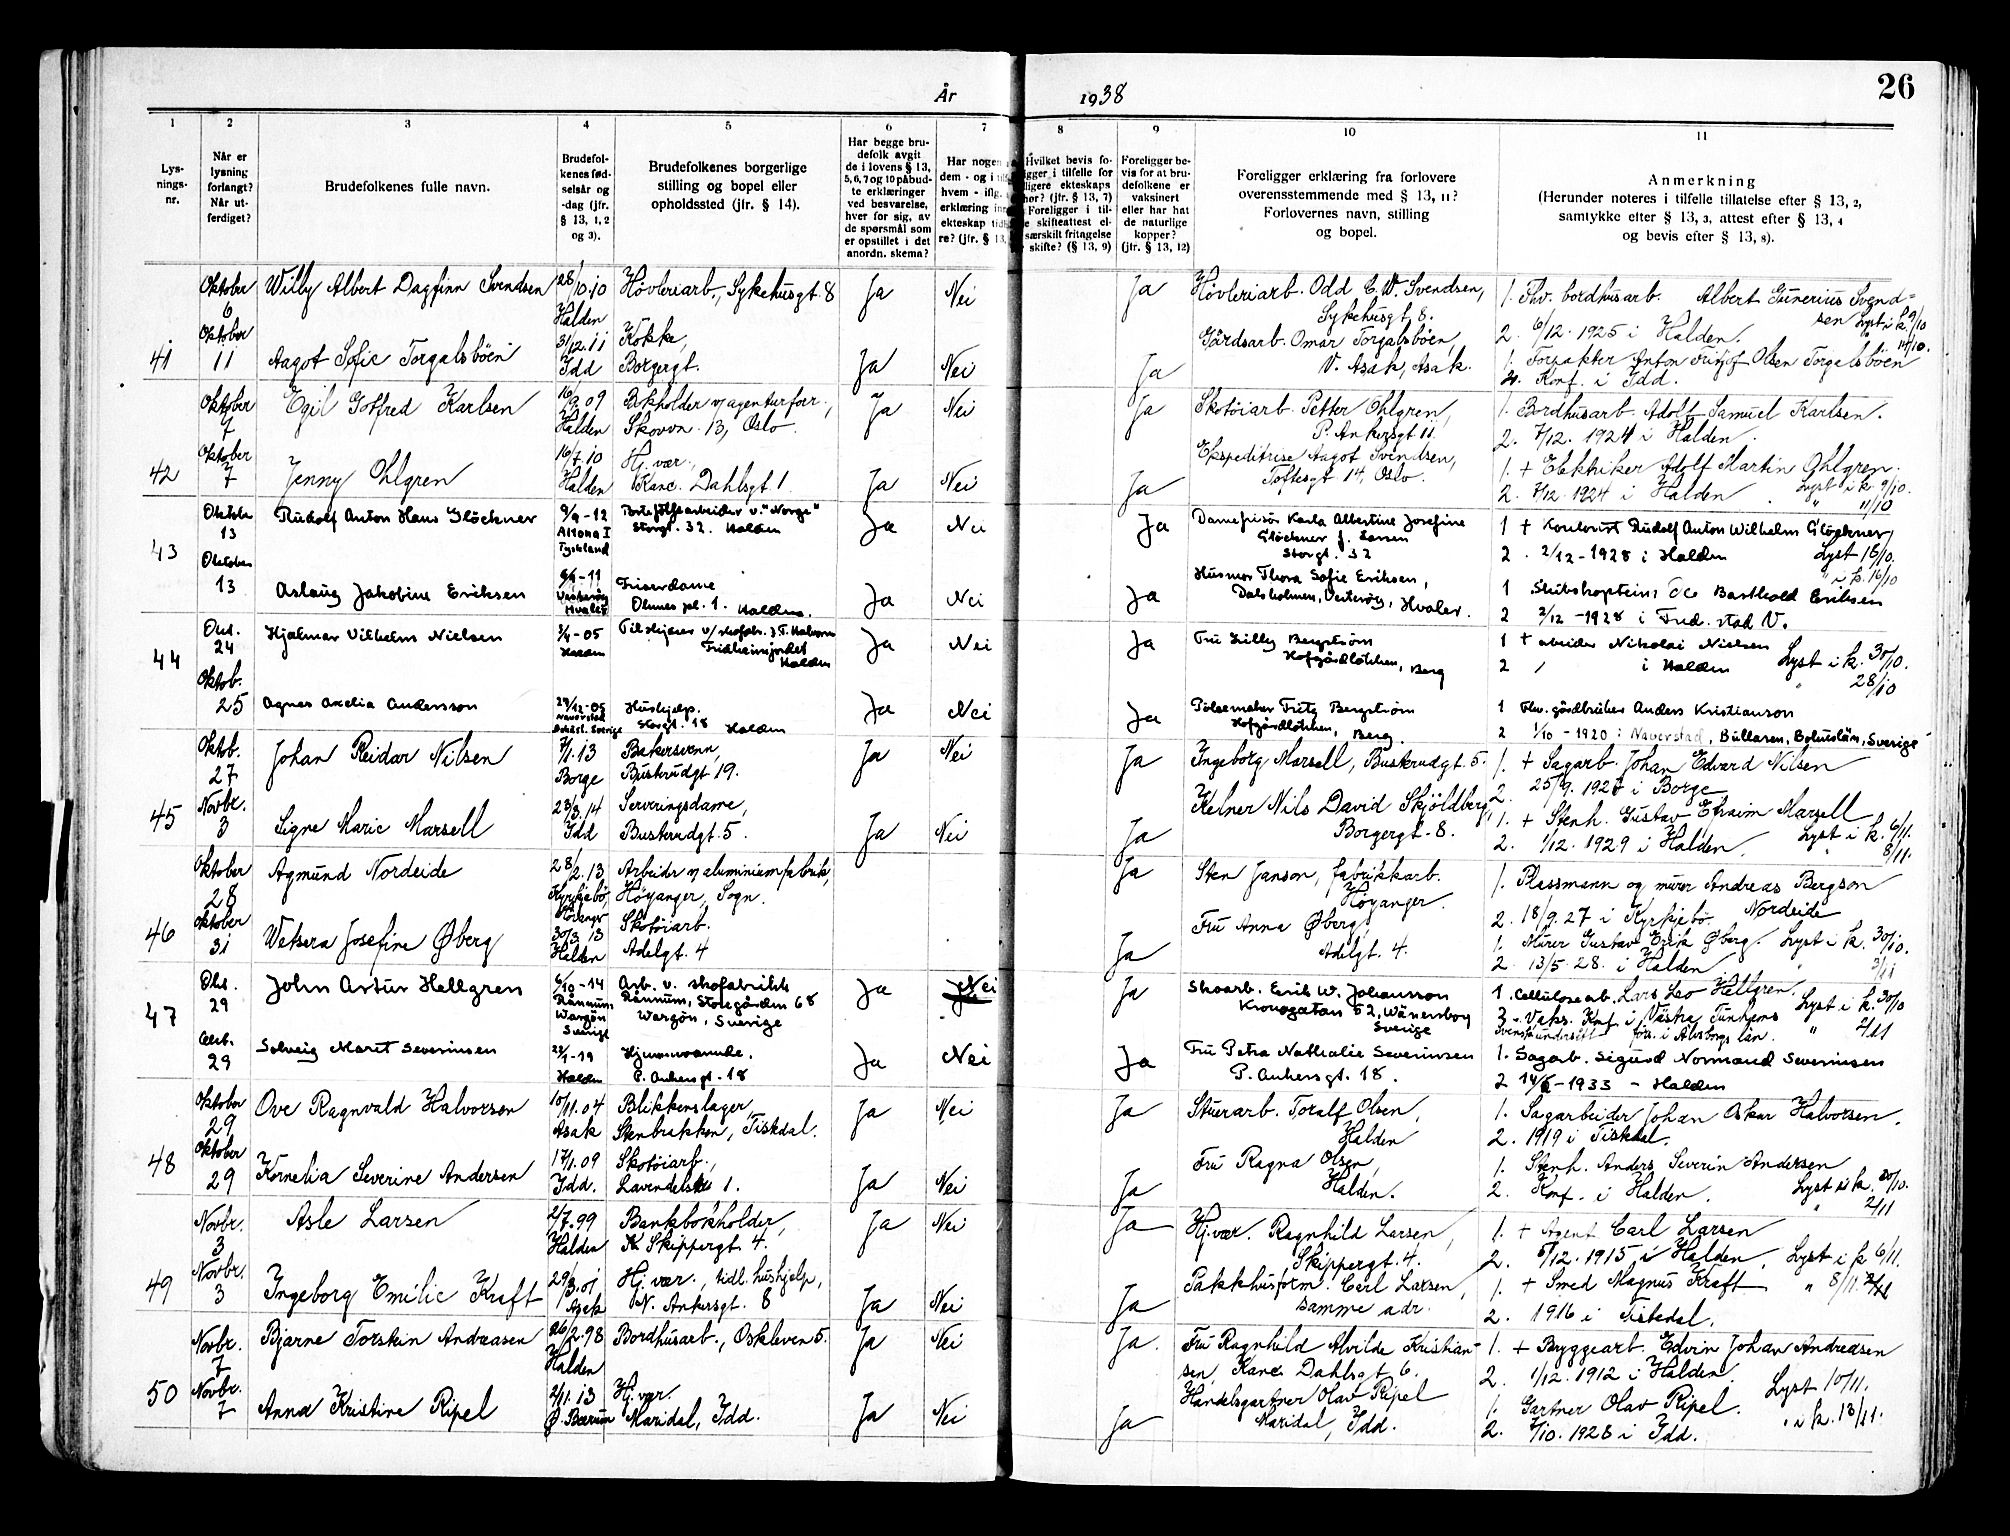 År 1938
26
1 2 3 4 5 6 7 8 9 10 11
Lysningsnr.
Når er lysning forlangt? Når utferdiget?
Brudefolkenes fulle navn.
Brudefolkenes fødselsår og -dag (jfr. § 13, 1, 2 og 3).
Brudefolkenes borgerlige stilling og bopel eller opholdssted (jfr. § 14).
Har begge brudefolk avgit de i lovens § 13, 5, 6, 7 og 10 påbudte erklæringer ved besvarelse, hver for sig, av de spørsmål som er opstillet i det anordn. skema?
Har nogen
dem - og i
hvem - iflg.
erklæring
ekteskap
re? (jfr. § 13,
Hvilket bevis fo-
igger i tilfelle for
ligere ekteskaps
hør? (jfr. § 13, 7)
Foreligger i til-
e skifteattest el-
særskilt fritagelse
skifte? (§ 13, 9)
Foreligger bevis for at brudefolkene er vaksinert eller har hat de naturlige kopper? (jfr. § 13, 12)
Foreligger erklæring fra forlovere overensstemmende med § 13, 11? Forlovernes navn, stilling og bopel.
Anmerkning
(Herunder noteres i tilfelle tillatelse efter § 13, 2, samtykke efter § 13, 3, attest efter § 13, 4 og bevis efter § 13, 8).
Oktober 6 Willy Albert Dagfinn Svendsen 28/10.10 Halden Høvleriarb., Sykehusgt. 8 Ja Nei Ja Høvleriarb. Odd E. W. Svendsen, Sykehusgt. 8. 1. Fhv. bordhusarb. Albert Gunerius Svendsen Lyst i k. 9/10
2. 6/12. 1925 i Halden. 14/10.
41 Oktober 11 Aagot Sofie Torgalsbøen 31/12.11 Idd Kokke, Borgergt. Ja Nei Ja Gårdsarb. Omar Torgalsbøen, V. Asak, Asak. 1. Forpakter Anton Olsen Torgalsbøen
2. Konf. i Idd.
Oktober 7 Egil Gotfred Karlsen 16/9.09 Halden Bokholder v/ agenturforr., Skovvn. 13, Oslo. Ja Nei Ja Skotøiarb. Petter Ohlgren, P. Ankersgt. 11. 1. Bordhusarb. Adolf Samuel Karlsen.
2. 7/12. 1924 i Halden.
42 Oktober 7 Jenny Ohlgren 16/7.10 Halden Hj. vær., Kanc. Dahlsgt. 1. Ja Nei Ja Ekspeditrise Aagot Svendsen, Toftesgt. 14, Oslo. 1. + Elektriker Adolf Martin Ohlgren. Lyst i k. 9/10.
2. 7/12. 1924 i Halden. " 11/10
43 Oktobr 13 Rudolf Anton Hans Glöckner 9/9-12 Altona I Tyskland v. "Norge" Storgt. 32. Halden Ja Nei Ja Damefrisør Karla Albertine Josefine Glöckner f. Larsen Storgt. 32 1 + Rudolf Anton Wilhelm Glöckner
2. 2/12-1928 i Halden Lyst 15/10.
" i k. 16/10
Oktober 13 Aslaug Jakobine Eriksen -11 Vesterøy Hvaler Friserdame Olmes pl. 1. Halden. Ja Nei Ja Husmor Thora Sofie Eriksen, Dalsholmen, Vesterøy, Hvaler. 1 Ole Barthold Eriksen
2 2/12-1928 i Fred. stad V.
44 Okt. 24 Hjalmar Vilhelm Nielsen -05 Halden Tilskjærer v/ skofabr. Fridheimjordet Halden Ja Nei Ja Fru Lilly Bergstrøm Hofgårdløkken, Berg 1 + arbeider Nikolai Nielsen
2 / i Halden Lyst i k. 30/10.
" 28/10
Oktob. 25 Agnes Axelia Andersson 29/12-05 Naverstad Sverige Hushjelp. Storgt. 18 Halden Ja Nei Ja Pølsemaker Fritz Bergstrøm Hofgårdløkken, Berg. 1 Fhv. gårdbruker Anders Kristianson
2 1/10-1920: Naverstad, Bullaren, Bohuslän, Sverige
Oktob. 27 Johan Reidar Nilsen 7/1.13 Borge Bakersvenn, Buskrudgt 19. Ja Nei Ja Ingeborg Marsell, Buskrudgt. 5. 1. + Sagarb. Johan Edvard Nilsen
2. 25/9. 1927 i Borge
45 Novbr. 3 Signe Marie Marsell 23/3.14 Idd Serveringsdame, Buskrudgt. 5. Ja Nei Ja Kelner Nils David Skjöldberg, Borgergt. 8. 1. + Stenh. Gustav Efraim Marsell Lyst i k. 6/11.
2. 1/12. 1929 i Halden. " 8/11.
Oktober 28 Agmund Nordeide 28/2.13 Kyrkjebø, Høyanger Arbeidr v/ aluminiumfabrik, Høyanger, Sogn. Ja Sten Janson, fabrikkarb. Høyanger. 1. Plassmann og murer Andreas Bergson Nordeide
2. 18/9. 27 i Kyrkjebø
46 Oktober 31 Josefine Øberg 30/3.13 Halden Skotøiarb. Adelgt. 4 Ja Fru Anna Øberg, Adelgt. 4. 1. Murer Gustav Erik Øberg. Lyst i k. 30/10.
2. 13/5-28. i Halden " 3/11
47 Okt. 29 John Artur Hellgren 6/10-14 Rånnum Wargön Sverige Arb. v. skofabrikk Rånnum, Storegården 68 Wargön, Sverige Ja Nei Ja Skoarb. Erik W. Johansson Kronogatan 52, Wänersborg Sverige 1. Cellulosearb. Lars Leo Hellgren Lyst i k. 30/10
2. Vaks. Konf. i Västra Tunhems " 2/11
Svensk undersått förs. i Älvsborgs län.
29 Solveig Marit Severinsen -19 Halden Hjemmeværende. P. Ankersgt. 18 Ja Nei Ja Fru Petra Nathalie Severinsen P. Ankersgt. 18. 1. Sagarb. Sigurd Normand Severinsen
2 -1933 - Halden
Oktober 29 Ove Ragnvald Halvorsen 10/11.04 Asak Blikkenslager, Stenbrekken, Tistedal. Ja Nei Ja Stuerarb. Toralf Olsen, Halden 1. Sagarbeider Johan Oskar Halvorsen.
2. 1919 i Tistedal.
48 Oktober 29 Kornelia Severine Andersen 17/1.09 Idd. Skotøiarb., Lavendelstr. 1. Ja Nei Ja Fru Ragna Olsen, Halden. 1. Stenh. Anders Severin Andersen
2. Konf. i Halden. Lyst i k. 30/10.
" 2/11
Novbr. 3 Asle Larsen 2/7.99 Halden Bankbokholder, K Skippergt. 4. Ja Nei Ja Hj. vær. Ragnhild Larsen, Skippergt. 4. 1. + Agent Carl Larsen
2. 5/12. 1915 i Halden. Lyst i k 6/11.
49 Novbr. 3 Ingeborg Emilie Kraft 29/3.01 Asak Hj. vær., tidl. hushjelp, N. Ankersgt. 8 Ja Nei Ja Pakkhusform. Carl Larsen, samme adr. 1. + Smed Magnus Kraft " 8/11.
2. 1916 i Tistedal.
Novbr. 7 Bjarne Torstein Andreasen 26/2.98 Halden Bordhusarb., Oskleven 5. Ja Nei Ja. Fru Ragnhild Alvilde Kristiansen, Kanc. Dahlsgt 6. 1. + Byggearb. Edvin Johan Andreasen
2. 1/12. 1912 i Halden.
50 Novbr. 7 Anna Kristine Ripel 2/11.13 Ø. Bærum Hj. vær. Maridal, Idd. Ja Nei Ja Handelsgartner Olav Ripel Maridal, Idd. 1. Gartner Olav Ripel. Lyst 10/11.
2. 7/10. 1928 i Idd. " i k. 13/11.